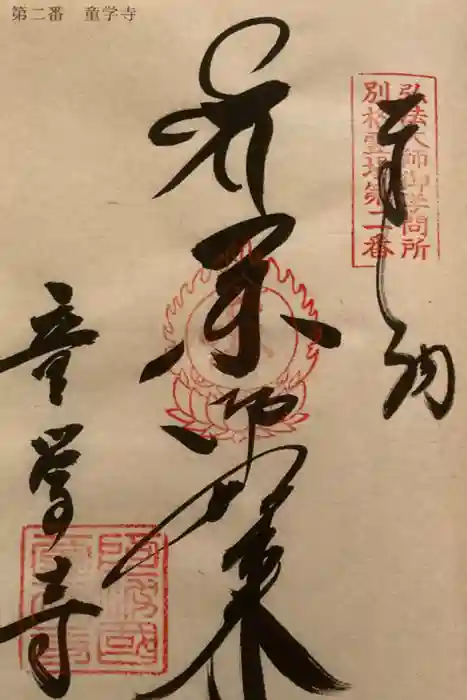 第二番　童学寺
奉納
弘法大師御学問所
別格霊場第二番
薬師如来
童学寺